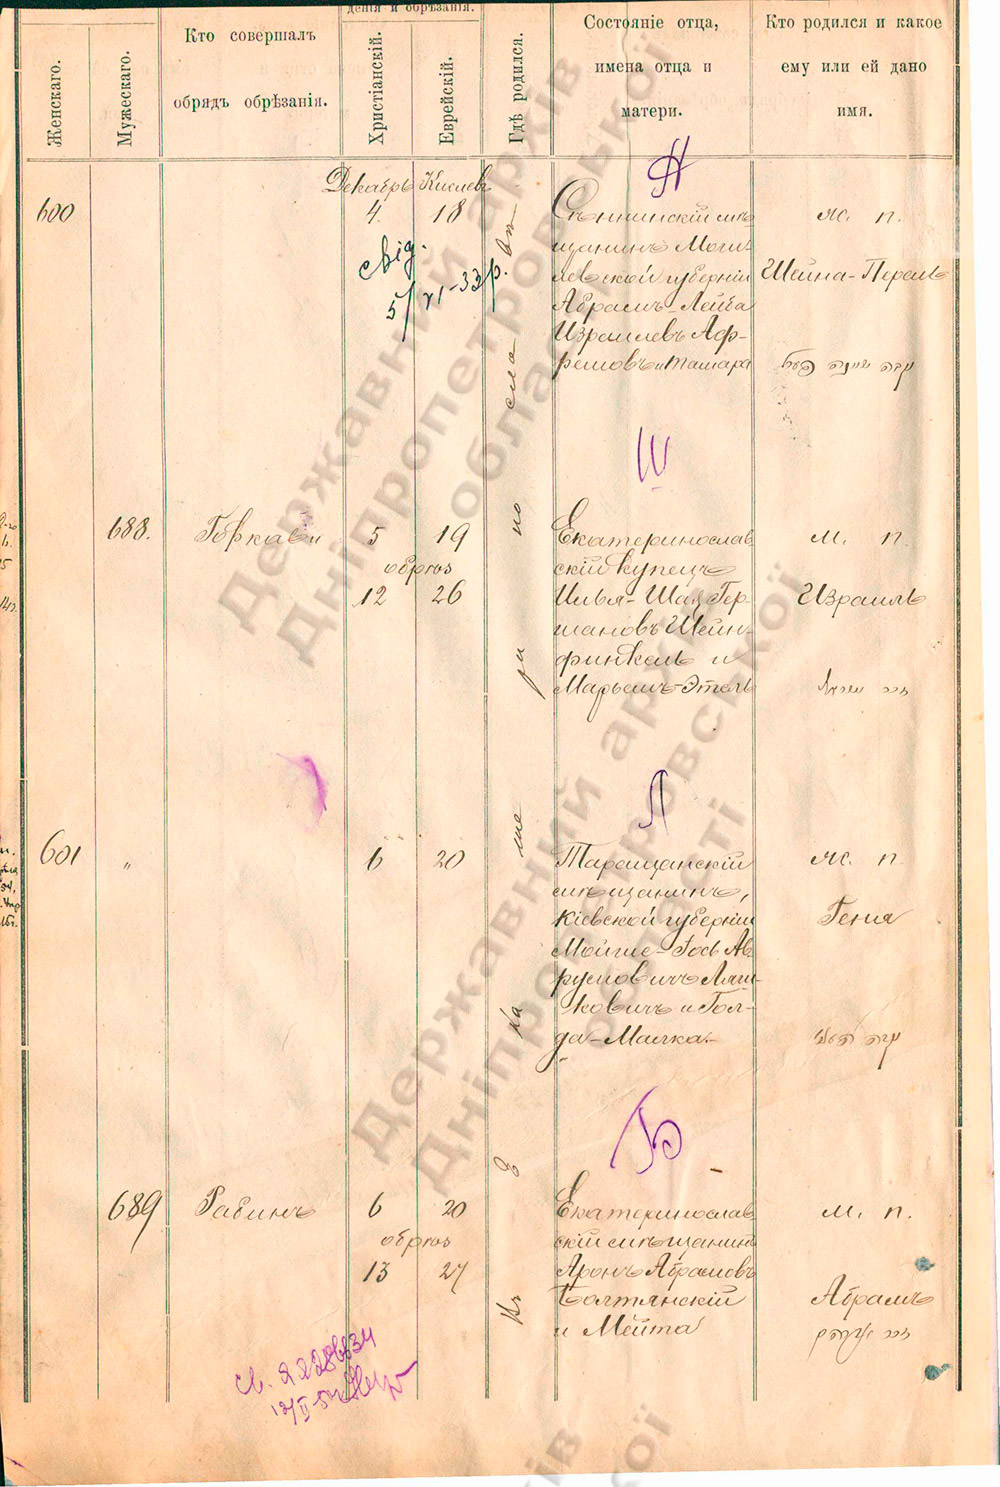 дения и обрѣзанія.
Женскаго.
Мужескаго.
Кто совершалъ
обрядъ обрѣзанія.
Христіанскій.
Еврейскій.
Гдѣ родился.
Состояніе отца,
имена отца и
матери.
Кто родился и какое
ему или ей дано
имя.
Декабрь Кислевъ
600 4. 18
свід.
5/XI-33 р.
Сѣннинскій мѣ
щанинъ Моги
левской губерніи
Абрамъ-Лейба
Израилевъ Аф-
ремовъ и Тамара
ж. п.
Шейна-Перель
IV
688. Горкави 5 19
обрѣз
12 26
Екатеринослав
скій купецъ
Илья-Шая Гер-
шановъ Шейн-
финкель и
Марьемъ-Этель
м. п.
Израиль
זכר ישראל
Л
601 " 6 20
Таращанскій
мѣщанинъ,
Кіевской губерніи
Мойше-Іось Ав
румовичъ Ляш-
ковичъ и Гол-
да-Малка.
ж. п.
Геня
Б
689 Рабинъ 6 20
обрѣз
13 27
Екатеринослав
скій мѣщанинъ
Аронъ Абрамовъ
Болтянскій
и Мейта
м. п.
Абрамъ
זכר
Державний архів
Дніпропетровської
області
Державний архів
Дніпропетровської
області